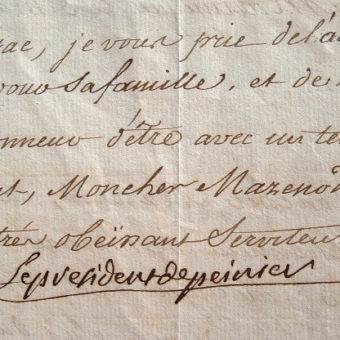 rac, je vous prie de l'a
vous sa famille, et de
onneur d'être avec un te
et, Moncher Mazenod
très obeïssant Serviteur
Leprésident depeinier